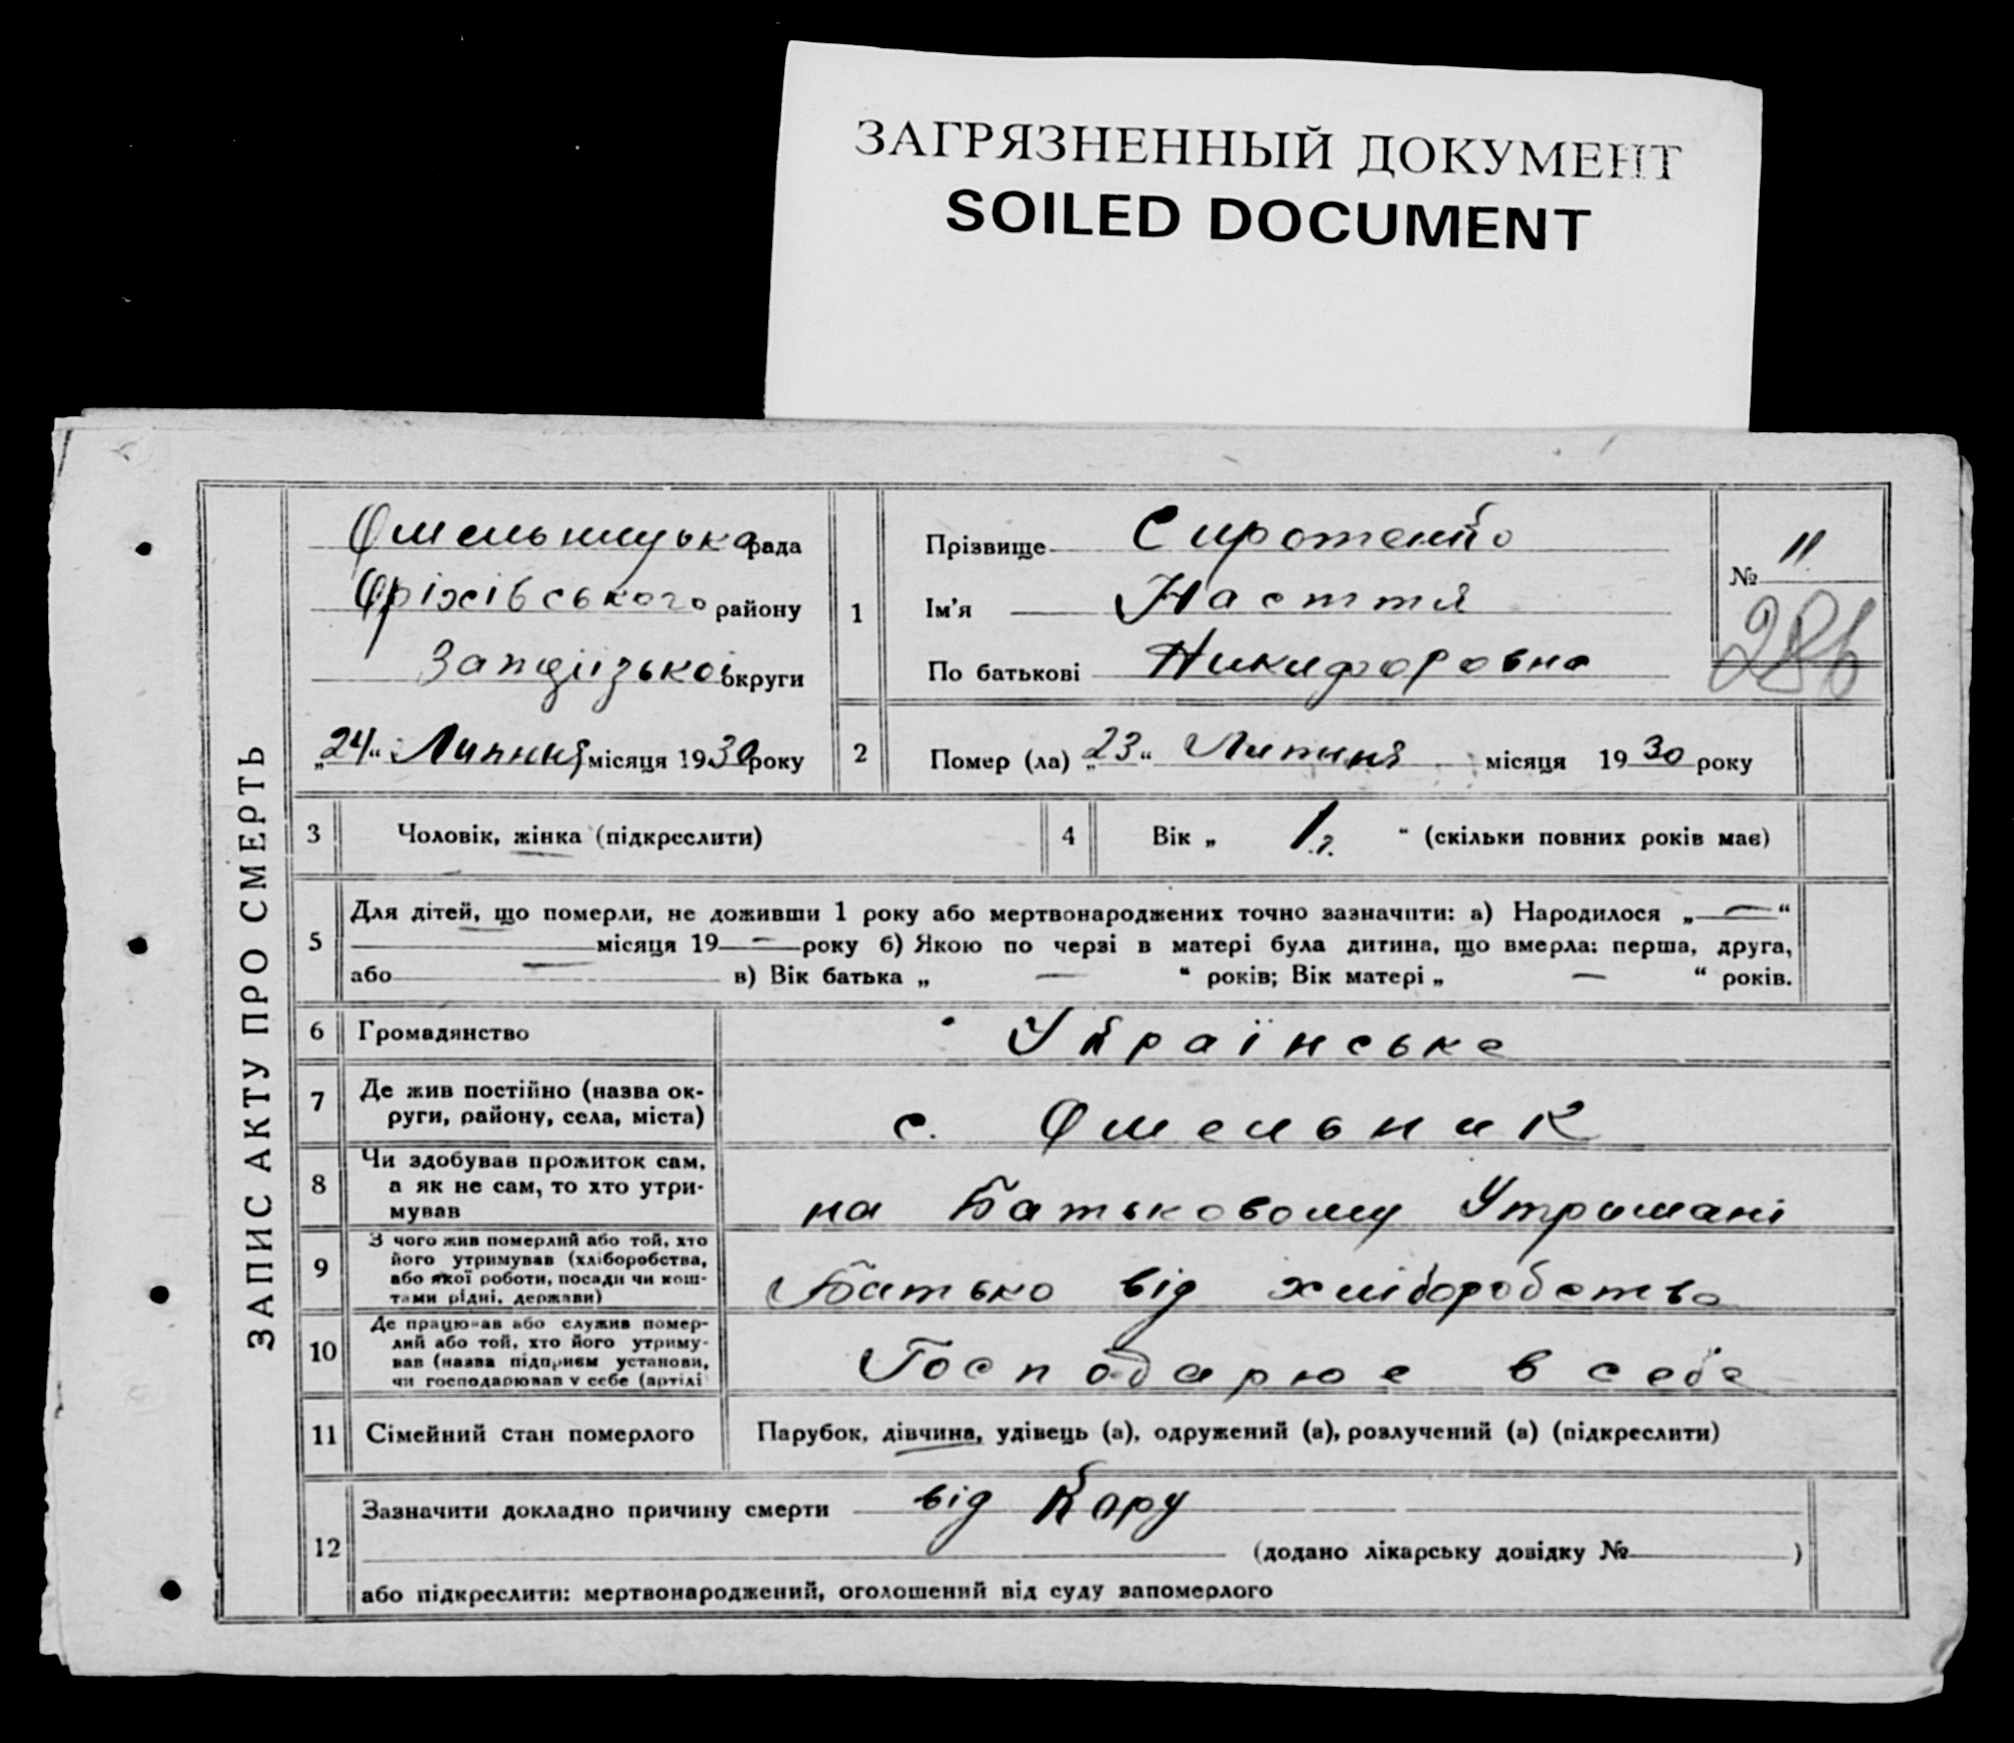 ЗАГРЯЗНЕННЫЙ ДОКУМЕНТ
SOILED DOCUMENT
ЗАПИС АКТУ ПРО СМЕРТЬ
Омельницька рада
Оріхівського району
округи
„24“ Липня місяця 1930 року
1
Прізвище Сиротенко
Ім'я Насття
По батькові Никифоровна
№ 11
286
2
Помер (ла) „23“ Липня місяця 1930 року
3 Чоловік, жінка (підкреслити)
4 Вік „ 1 г. “ (скільки повних років має)
5 Для дітей, що померли, не доживши 1 року або мертвонароджених точно зазначити: а) Народилося „—“
місяця 19 — року б) Якою по черзі в матері була дитина, що вмерла: перша, друга,
або — в) Вік батька „ — “ років; Вік матері „ — “ років.
6 Громадянство Українське
7 Де жив постійно (назва ок-
руги, району, села, міста)
с. Омельник
8 Чи здобував прожиток сам,
а як не сам, то хто утри-
мував
на Батьковому Утримані
9 З чого жив померлий або той, хто
його утримував (хліборобства,
або якої роботи, посади чи кош-
тами рідні, держави)
Батько від хліборобства
10 Де працював або служив помер-
лий або той, хто його утриму-
вав (назва підприєм установи,
чи господарював у себе (артілі
Господарює в себе
11 Сімейний стан померлого Парубок, дівчина, удівець (а), одружений (а), розлучений (а) (підкреслити)
12 Зазначити докладно причину смерти від Кору
(додано лікарську довідку № )
або підкреслити: мертвонароджений, оголошений від суду запомерлого